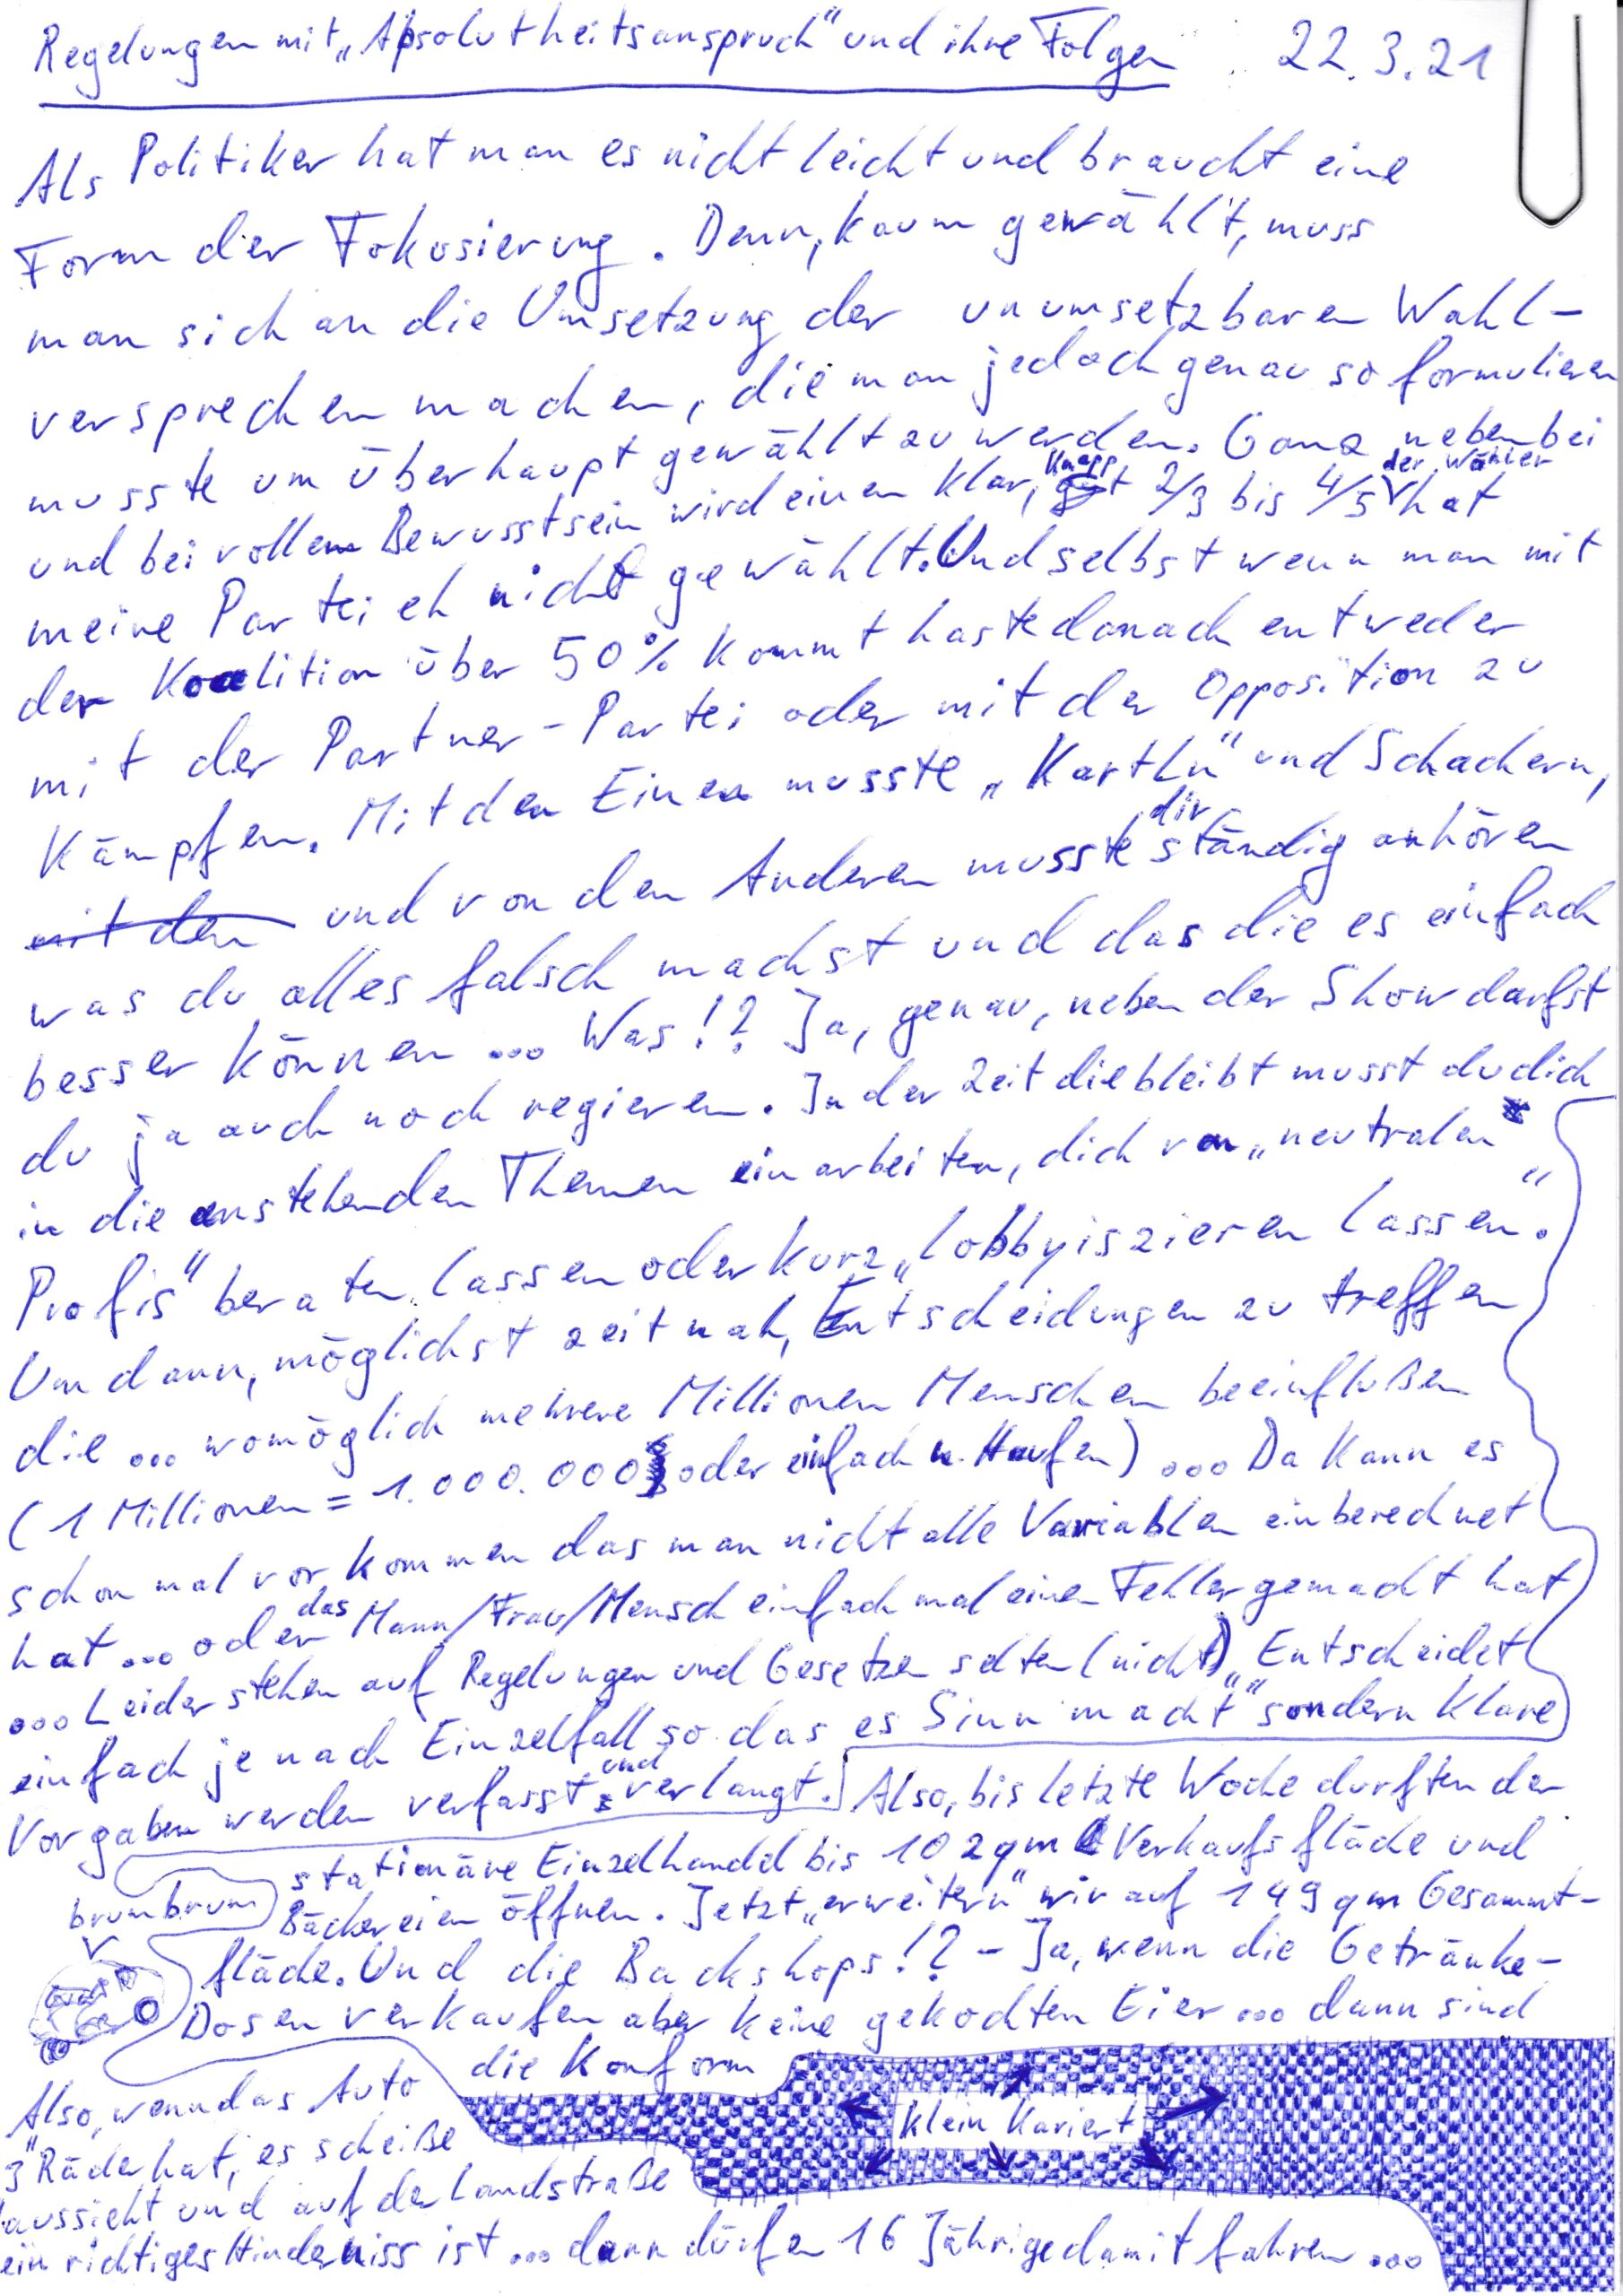 Regelungen mit „Absolutheitsanspruch" und ihre Folgen 22.3.21
Als Politiker hat man es nicht leicht und braucht eine
Form der Fokusierung. Denn, kaum gewählt, muss
man sich an die Umsetzung der unumsetzbaren Wahl-
versprechen machen, die man jedoch genau so formulieren
musste um überhaupt gewählt zu werden. Ganz nebenbei
und bei vollem Bewusstsein wird einen klar, knapp 2/3 bis 4/5 der Wähler hat
meine Partei eh nicht gewählt. Und selbst wenn man mit
der Koalition über 50% kommt haste danach entweder
mit der Partner-Partei oder mit der Opposition zu
kämpfen. Mit den Einen musste „Kartln" und Schachern,
mit den und von den Anderen musste dir ständig anhören
was du alles falsch machst und das die es einfach
besser können ... Was!? Ja, genau, neben der Show darfst
du ja auch noch regieren. In der Zeit die bleibt musst du dich
in die anstehenden Themen einarbeiten, dich von „neutralen
Profis" beraten lassen oder kurz „lobbyiszieren lassen."
Um dann, möglichst zeitnah, Entscheidungen zu treffen
die ... womöglich mehrere Millionen Menschen beeinflußen
(1 Millionen = 1.000.000 oder einfach n. Haufen) ... Da kann es
schon mal vorkommen das man nicht alle Variablen einberechnet
hat ... oder das Mann/Frau/Mensch einfach mal einen Fehler gemacht hat
... Leider stehen auf Regelungen und Gesetzen selten (nicht) „Entscheidet
einfach je nach Einzelfall so das es Sinn macht" sondern klare
Vorgaben werden verfasst und verlangt. Also, bis letzte Woche durften der
stationäre Einzelhandel bis 10 zqm Verkaufsfläche und
Bäckereien öffnen. Jetzt „erweitern" wir auf 149 qm Gesammt-
fläche. Und die Backshops!? - Ja, wenn die Getränke-
Dosen verkaufen aber keine gekochten Eier ... dann sind
die Konform
brumbrum
klein kariert
Also, wenn das Auto
3 Räder hat, es scheiße
aussieht und auf der Landstraße
ein richtiges Hinderniss ist ... dann dürfen 16 Jährige damit fahren ...